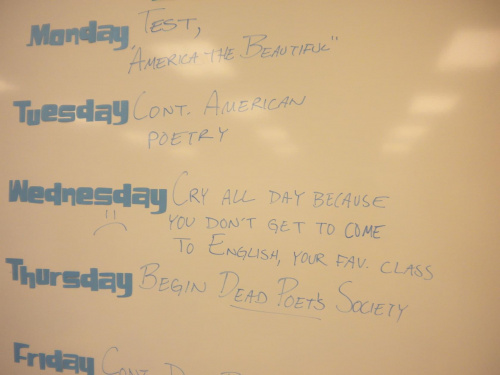 Monday TEST,
"AMERICA THE BEAUTIFUL"
Tuesday CONT. AMERICAN
POETRY
Wednesday CRY ALL DAY BECAUSE
YOU DON'T GET TO COME
TO ENGLISH, YOUR FAV. CLASS
Thursday BEGIN DEAD POET'S SOCIETY
Friday CONT.